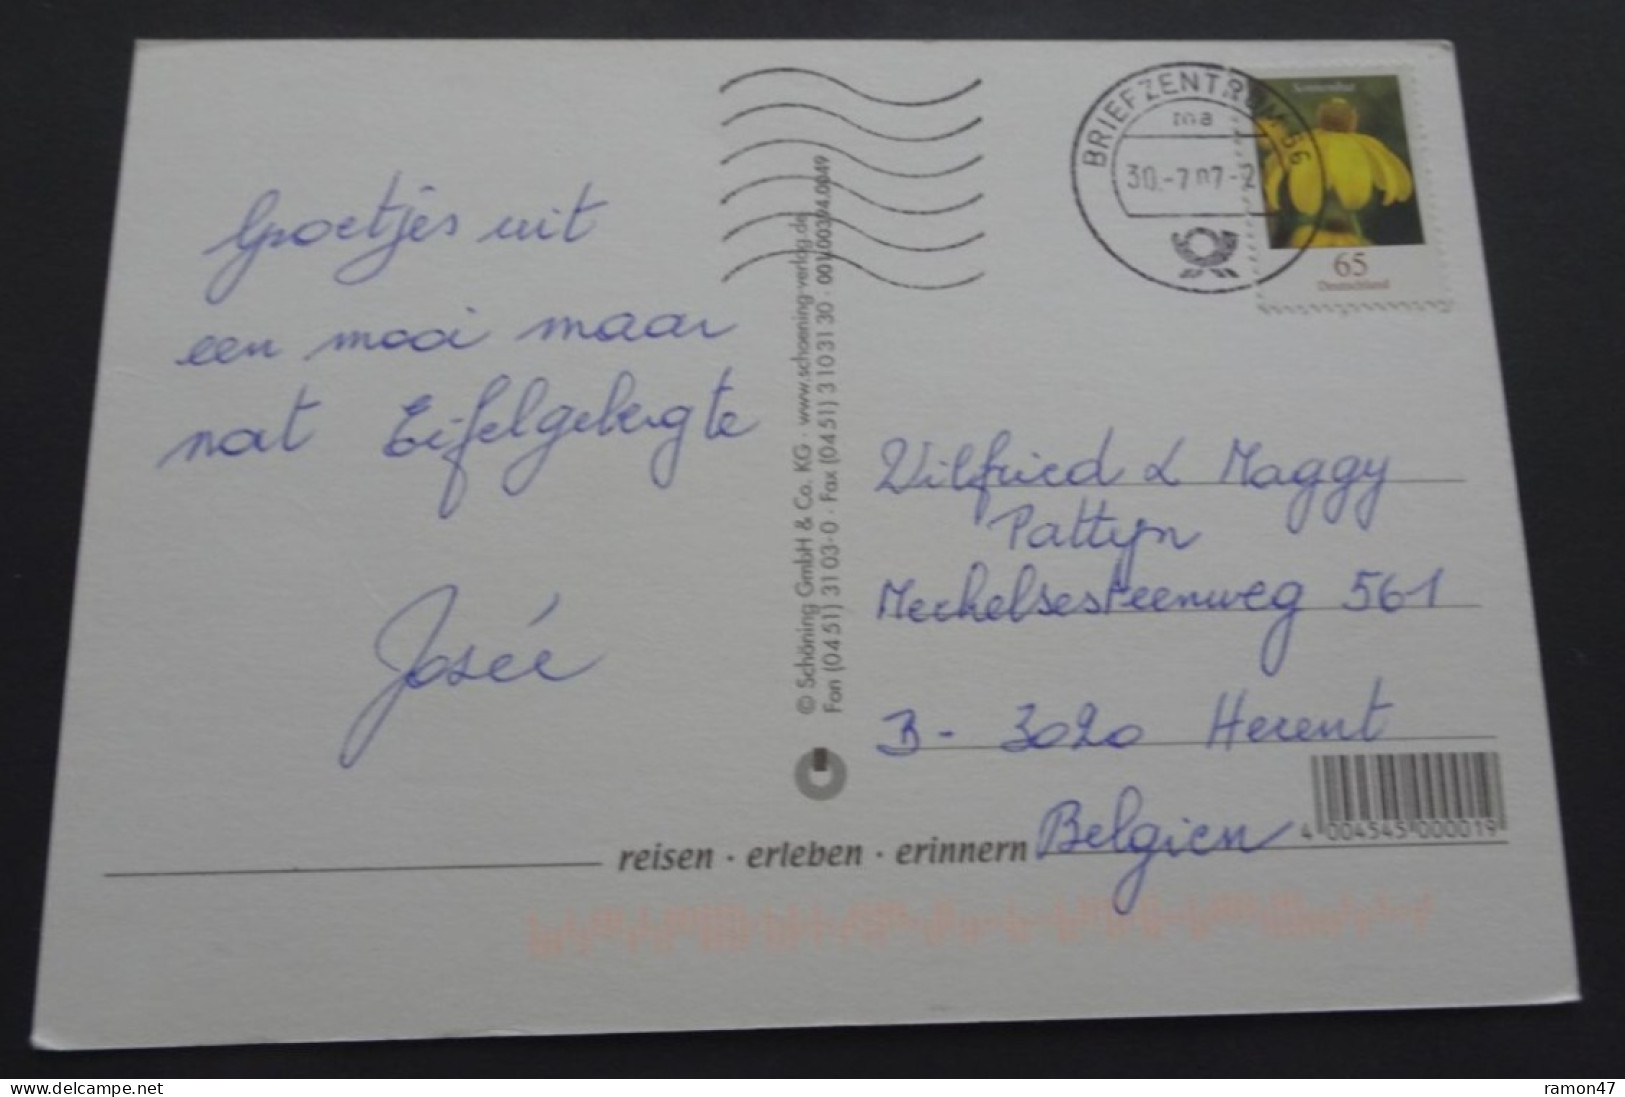 Groetjes uit
een mooi maar
nat Eifelgebergte
Josée
© Schöning GmbH & Co. KG · www.schoening-verlag.de
Fon (0451) 31 03-0 · Fax (0451) 3103130 · 001.00394.0049
BRIEFZENTRUM 56
ma
30.-7.07-2
65
Deutschland
Wilfried & Maggy
Pattyn
Mechelsesteenweg 561
B- 3020 Herent
Belgien
4 004545 000019
reisen · erleben · erinnern
www.delcampe.net
ramon47